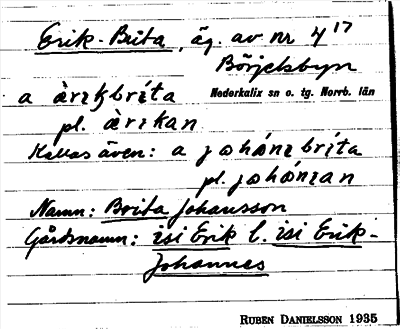 Erik-Brita, äg. av nr 4¹⁷
Börjelsbyn
a àrikbríta Nederkalix sn o. tg. Norrb. län
pl. àrikan
Kallas även: a johánɪbríta
pl. johánɪan
Namn: Brita Johansson
Gårdsnamn: isi Erik l. isi Erik-
Johannes
RUBEN DANIELSSON 1935